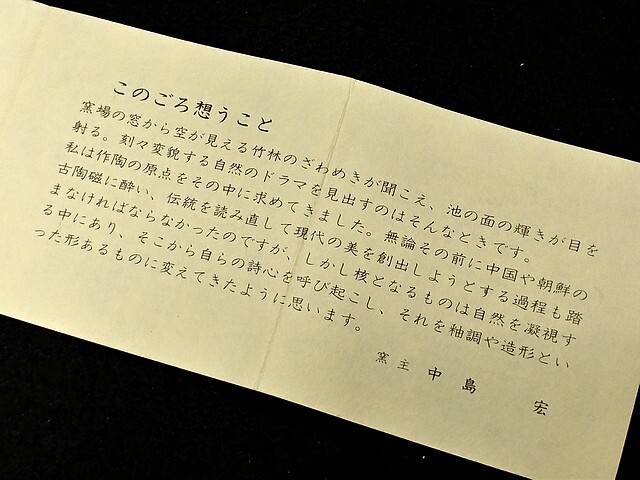 このごろ想うこと
窯場の窓から空が見える竹林のざわめきが聞こえ、池の面の輝きが目を
射る。刻々変貌する自然のドラマを見出すのはそんなときです。
私は作陶の原点をその中に求めてきました。無論その前に中国や朝鮮の
古陶磁に酔い、伝統を読み直して現代の美を創出しようとする過程も踏
まなければならなかったのですが、しかし核となるものは自然を凝視す
る中にあり、そこから自らの詩心を呼び起こし、それを釉調や造形とい
った形あるものに変えてきたように思います。
窯主 中島 宏